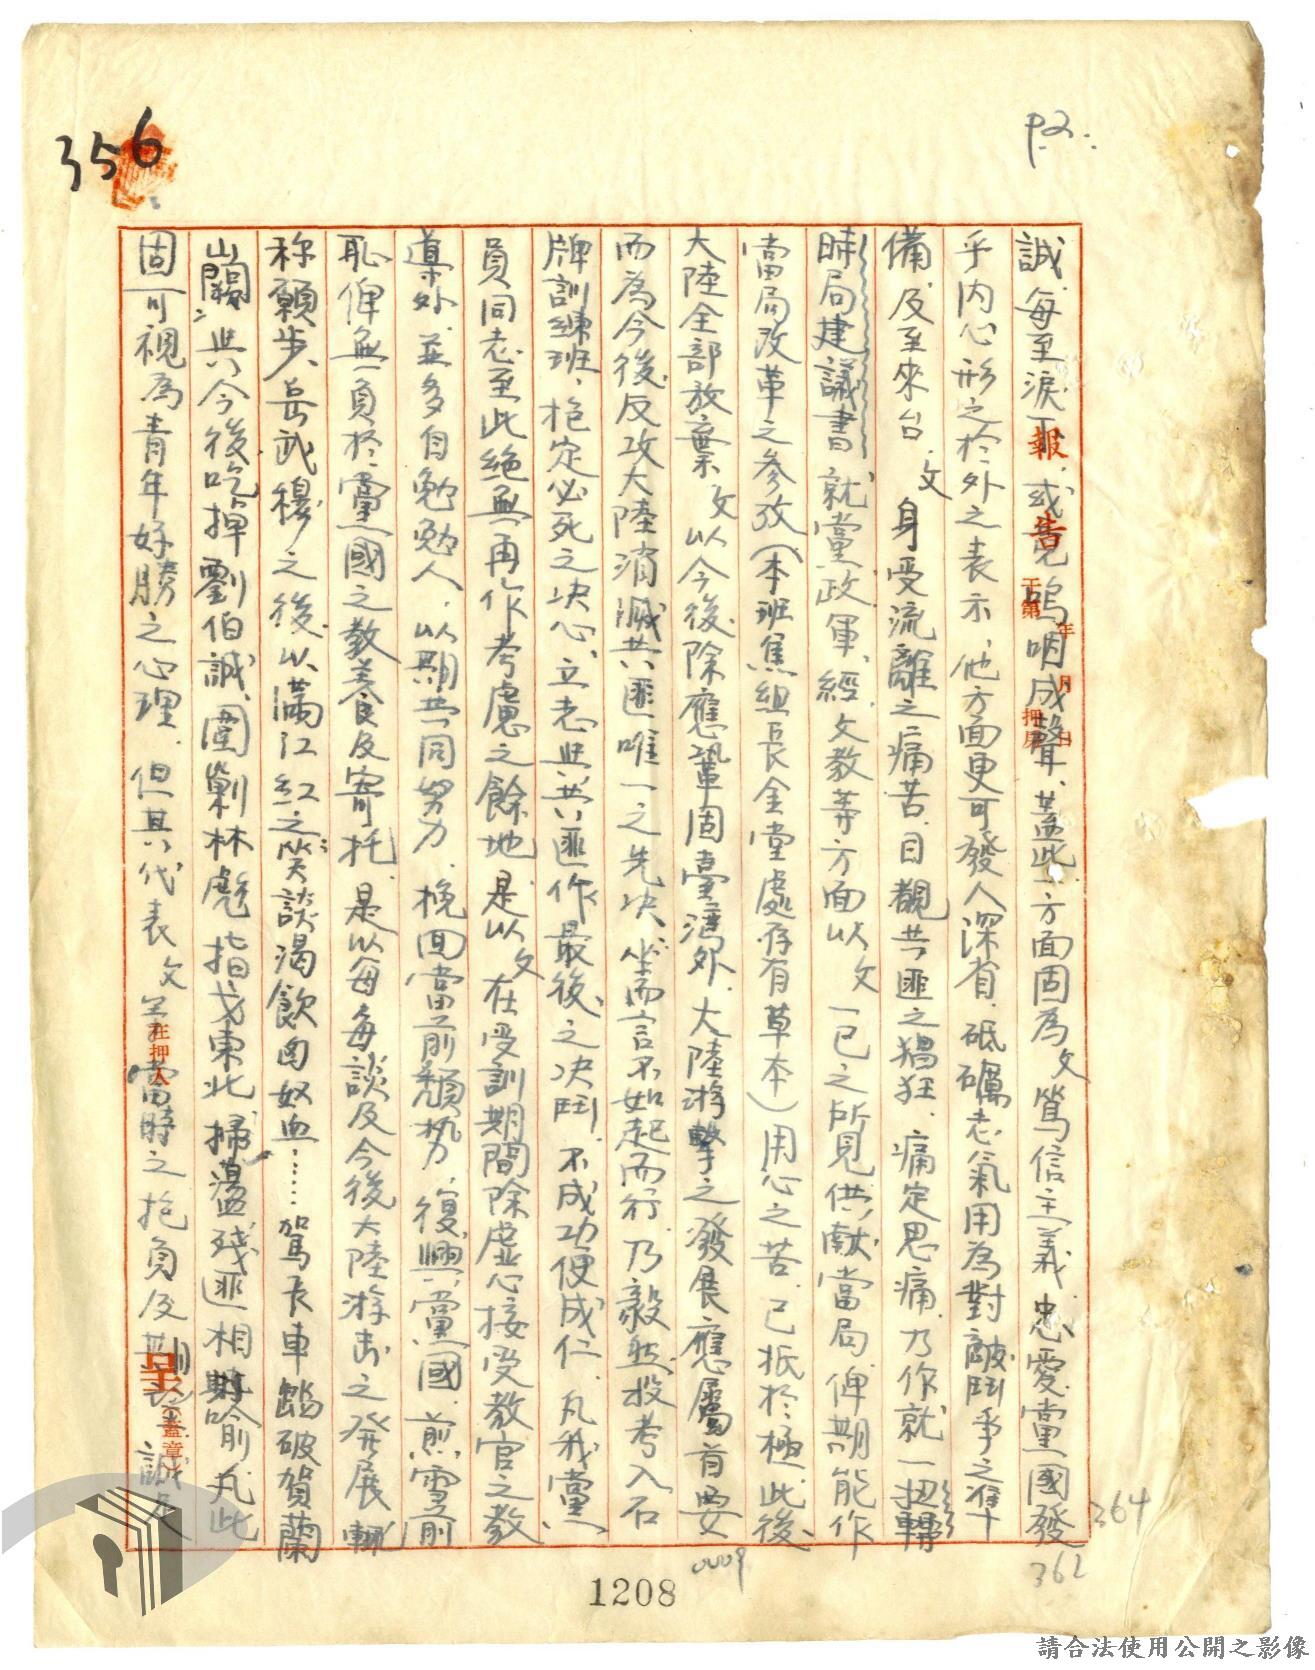 356
P.2.
誠每至淚下,或竟嗚咽成聲、蓋此一方面固為文篤信主義忠愛黨國發
乎內心形之於外之表示,他方面更可發人深省,砥礪志氣用為對敵鬥爭之準
備,及至來台、文身受流離之痛苦,目覩共匪之猖狂,痛定思痛,乃作就一扭轉
時局建議書就黨政軍、經、文教等方面以文一已之所見供献當局俾期能作
當局改革之參攷(本班焦組長金堂處存有草本)用心之苦,已抵於極,此後
大陸全部放棄,文以今後除應鞏固臺灣外,大陸游擊之發展應屬首要
而為今後反攻大陸消滅共匪唯一之先決、坐而言不如起而行,乃毅然投考入石
牌訓練班、抱定必死之決心,立志與共匪作最後之決鬥,不成功便成仁,凡我黨
員同志至此絕無再作考慮之餘地是以文在受訓期間除虛心接受教官之教
導外並多自勉勉人,以期共同努力,挽回當前頹勢,復興黨國,煎雪前
恥俾無負於黨國之教養及寄托,是以每每談及今後大陸游击之發展輒
称願步岳武穆之後以滿江紅之笑談渴飲匈奴血……駕長車踏破賀蘭
山闕與今後吃掉劉伯誠、圍剿林彪指戈東北掃蕩殘匪相對喻凡此
固可視為青年好勝之心理,但其代表文當時之抱負及期 誠
報告
年 月 日
在押人
呈
蓋章
364
362
0009
1208
請合法使用公開之影像